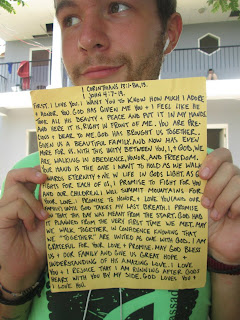 1 CORINTHIANS 13:1-8A, 13.
1 JOHN 4:7-19.
FIRST, I LOVE YOU. I WANT YOU TO KNOW HOW MUCH I ADORE
+ HONOR YOU. GOD HAS GIVEN ME YOU + I FEEL LIKE HE
TOOK ALL HIS BEAUTY + PEACE AND PUT IT IN MY HANDS
AND HERE IT IS, RIGHT IN FRONT OF ME. YOU ARE PRE-
CIOUS + DEAR TO ME. GOD HAS BROUGHT US TOGETHER,
GIVEN US A BEAUTIFUL FAMILY, AND NOW HAS EVEN
MORE FOR US. WITH THIS UNITY BETWEEN YOU, I, + GOD, WE
ARE WALKING IN OBEDIENCE, HONOR, AND FREEDOM.
YOUR HAND IS THE ONE I WANT TO HOLD AS WE WALK
TOWARDS ETERNITY + AS WE LIVE IN GOD'S LIGHT. AS GOD
FIGHTS FOR EACH OF US, I PROMISE TO FIGHT FOR YOU
AND OUR CHILDREN. I WILL SUMMIT MOUNTAINS FOR
YOUR LOVE. I PROMISE TO HONOR + LOVE YOU AND OUR
FAMILY UNTIL GOD TAKES MY LAST BREATH. I PROMISE
YOU THAT THIS DAY WAS MEANT FROM THE START. GOD HAD
IT PLANNED FROM THE VERY FIRST TIME WE MET. MAY
WE WALK TOGETHER IN CONFIDENCE KNOWING THAT
WE "TOGETHER" ARE UNITED AS ONE WITH GOD. I AM
GRATEFUL FOR YOUR LOVE + PROMISE. MAY GOD BLESS
US + OUR FAMILY AND GIVE US GREAT HOPE +
UNDERSTANDING OF HIS AMAZING LOVE. I LOVE
YOU + I REJOICE THAT I AM RUNNING AFTER GOD'S
HEART WITH YOU BY MY SIDE. GOD LOVES YOU +
I LOVE YOU.